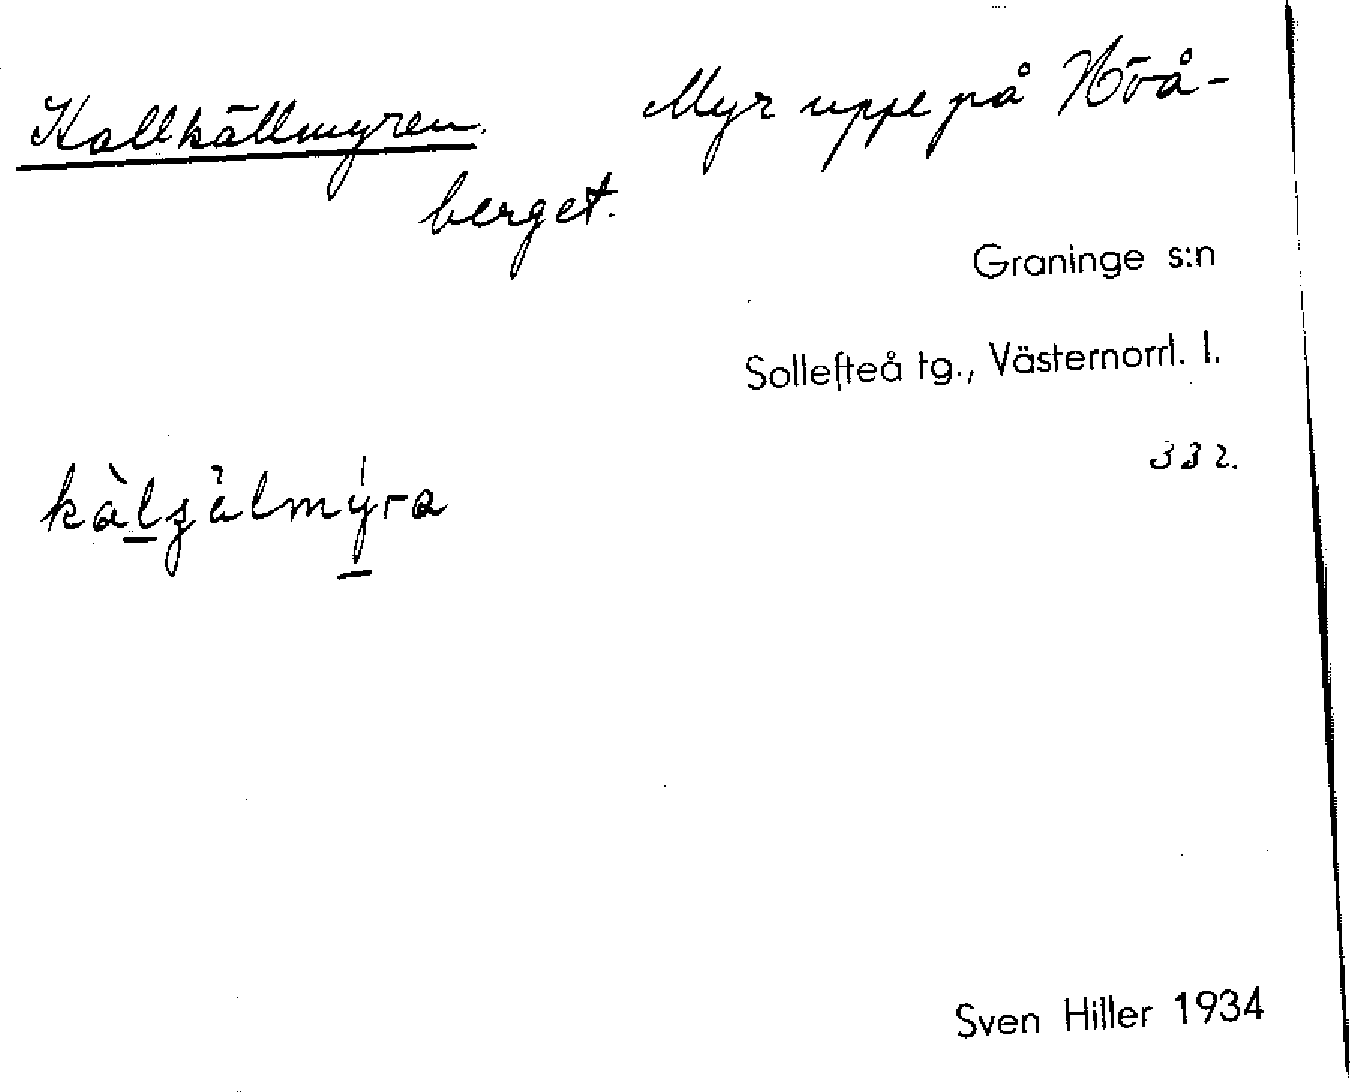 Kallkällmyren. Myr uppe på Hövå-
berget.
Graninge s:n
Sollefteå tg., Västernorrl. l.
332.
Sven Hiller 1934